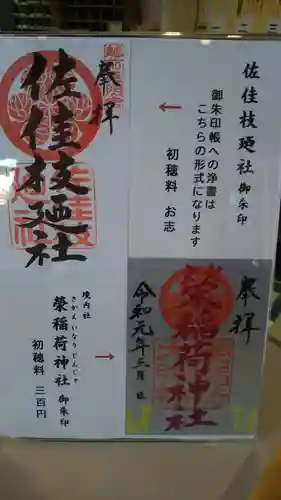 佐佳枝廼社 御朱印
御朱印帳への浄書は
こちらの形式になります
初穂料 お志
←
奉拝
佐佳枝廼社
境内社
さかえいなりじんじゃ
榮稲荷神社 御朱印
初穂料 三百円
→
奉拝
榮稲荷神社
令和元年三月 日